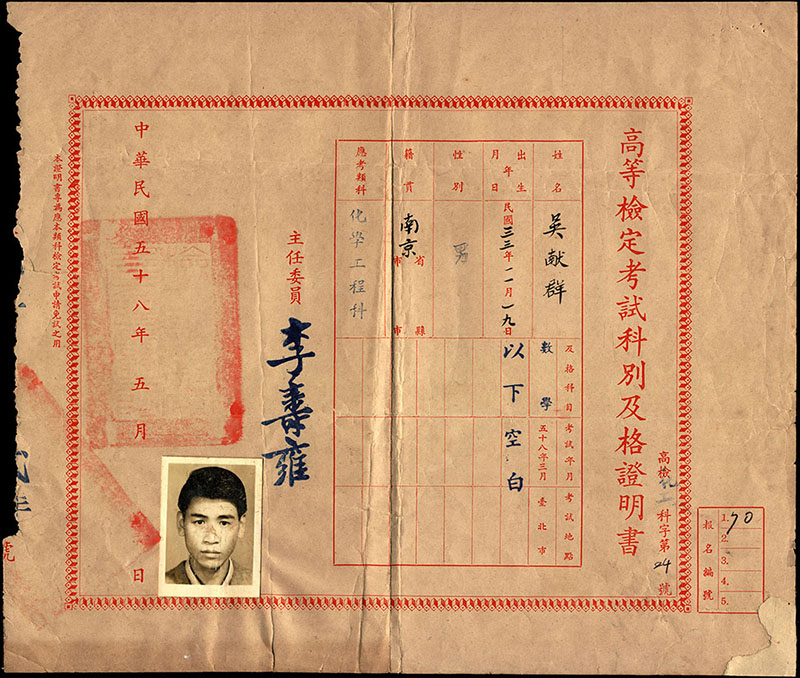 高等檢定考試科別及格證明書
高檢化工科字第24號
報名編號
1. 70
2.
3.
4.
5.
姓名
吳献群
出生年月日
民國三三年一一月一九日
性別
男
籍貫
南京
省市
縣市
應考類科
化學工程科
及格科目
考試年月
考試地點
數學
五十八年三月
臺北市
以下空白
主任委員
李壽雍
中華民國五十八年五月
日
本證明書專為應本類科檢定考試申請免試之用
號